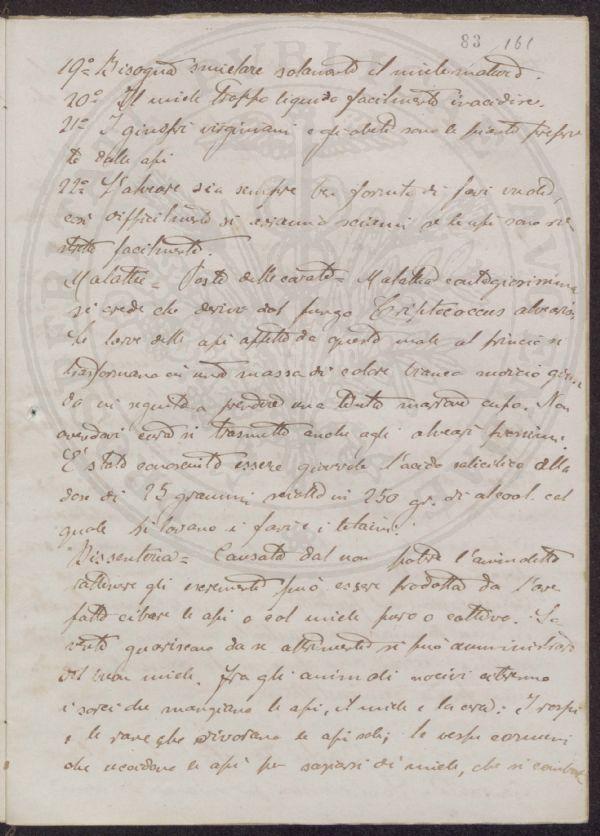 83 161
19º Bisogna smielare solamente il miele maturo.
20º Il miele troppo liquido facilmente inacidisce.
21º I ginepri virginiani e gli abeti sono le piante preferi
te dalle api
22º L'alveare sia sempre ben fornito di favi vuoti,
così difficilmente si sciami se le api sono ri
strette facilmente.
Malattie = Peste delle covate = Malattia contagiosissima
si crede che derivi dal fungo Criptococcus alvearis
Le larve delle api affette da questo male al principio si
trasformano in una massa di colore bianco marcio
da in seguito a prendere una tinta marrone cupo. Non
avendovi cura si trasmette anche agli alveari prossimi.
E' stato conosciuto essere giovevole l'acido salicilico alla
dose di 25 grammi sciolto in 250 gr. di alcool col
quale si lavano i favi e i telaini.
Dissenteria = Causata dal non poter l'animaletto
rattenere gli escrementi può essere prodotta da l'aver
fatto cibare le api o col miele puro o cattivo. So
vente guariscono da se altrimenti si può amministrare
del buon miele. Fra gli animali nocivi abbiamo
i sorci che mangiano le api, il miele e la cera: I rospi
e le rane che divorano le api sole; le vespe comuni
che uccidono le api per saziarsi di miele, che si